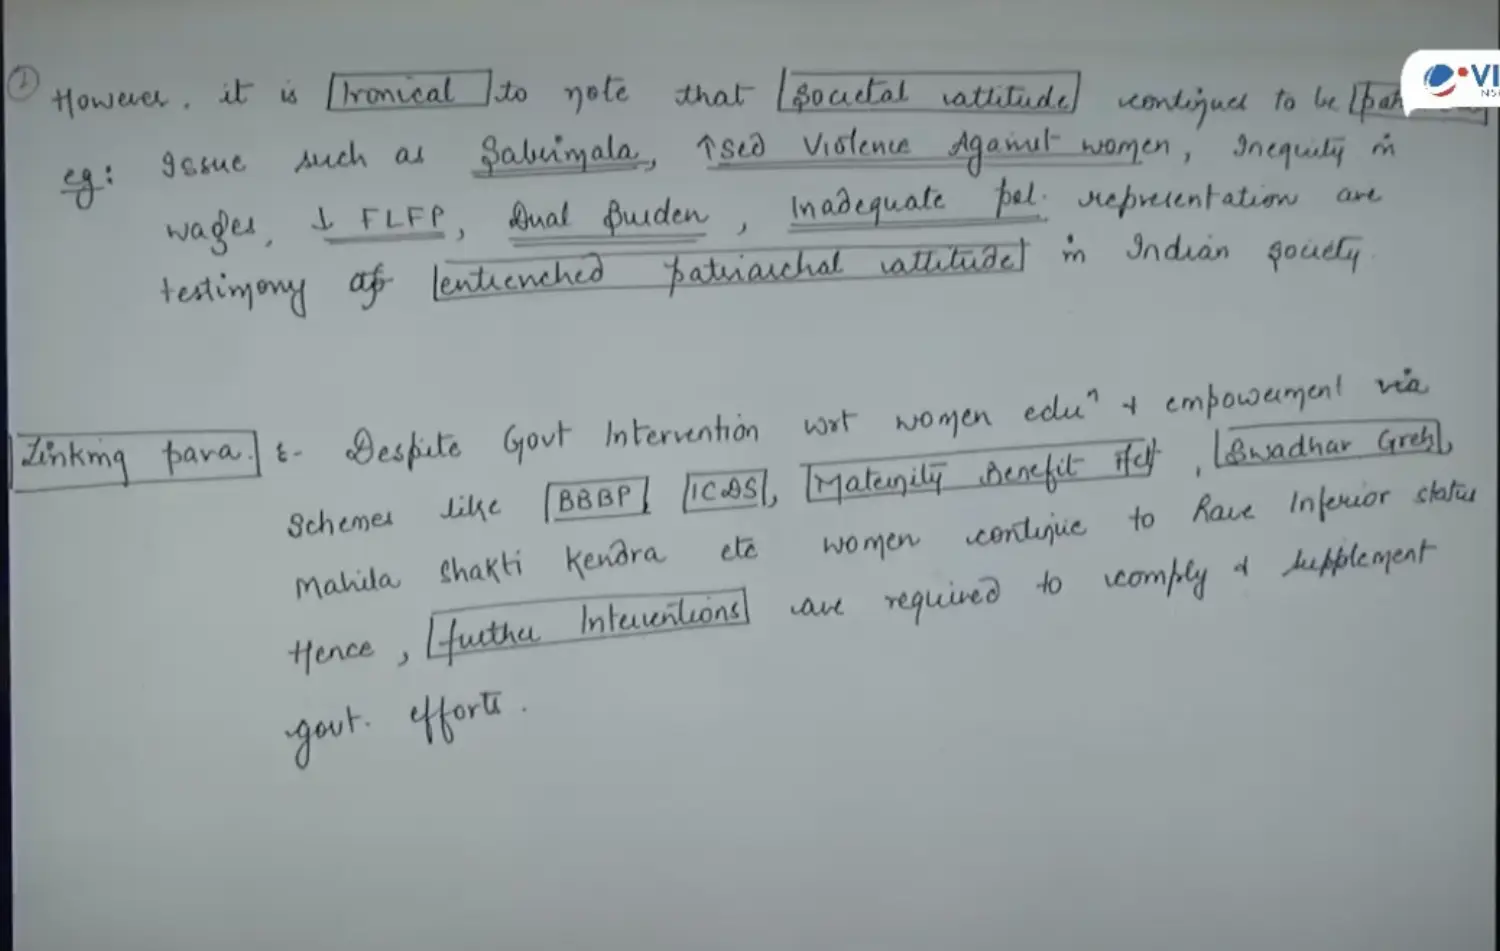 ② However, it is Ironical to note that Societal attitude continues to be
eg: Issue such as Sabrimala, ↑sed Violence Against women, Inequity in
wages, ↓ FLFP, Dual Burden, Inadequate pol. representation are
testimony of entrenched patriarchal attitude in Indian society.
Linking para :- Despite Govt Intervention wrt women eduⁿ & empowerment via
Schemes like BBBP, ICDS, Maternity Benefit Act, Swadhar Greh,
Mahila Shakti Kendra etc women continue to have Inferior status
Hence, further Interventions are required to comply & supplement
govt. efforts.
VI